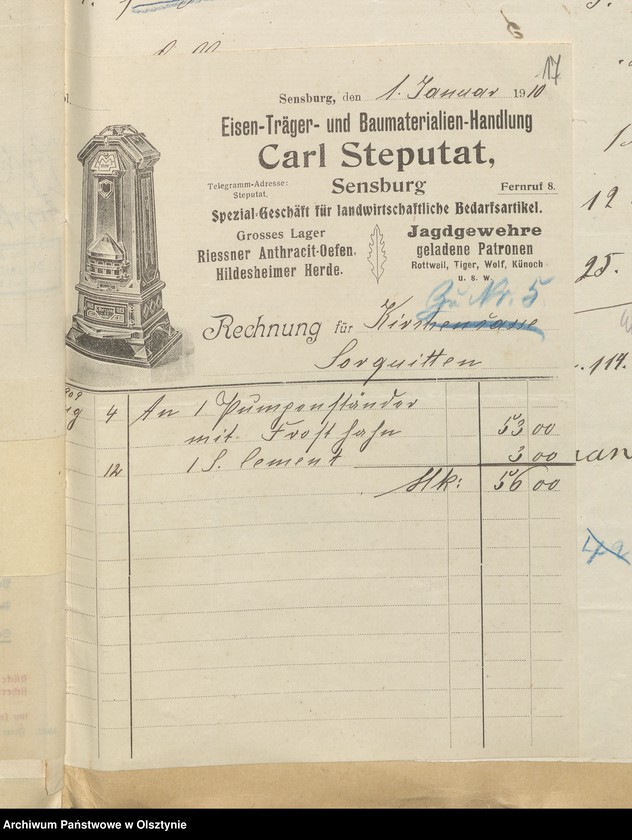 17
Sensburg, den 1. Januar 1910
Eisen-Träger- und Baumaterialien-Handlung
Carl Steputat,
Telegramm-Adresse:
Steputat.
Sensburg
Fernruf 8.
Spezial-Geschäft für landwirtschaftliche Bedarfsartikel.
Grosses Lager
Riessner Anthracit-Oefen,
Hildesheimer Herde.
Jagdgewehre
geladene Patronen
Rottweil, Tiger, Wolf, Künoch
u. s. w.
Zu Nr. 5.
Rechnung für Kirchenkasse
Sorquitten
4 An 1 Pumpenständer
mit Frosthahn 53 00
12 1 S. Cement 3 00
Mk: 56 00
12
25.
114.
Archiwum Państwowe w Olsztynie